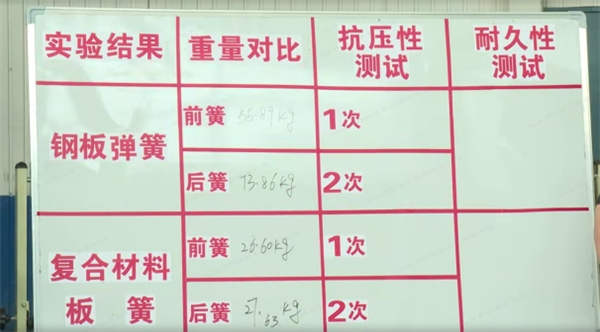 实验结果 重量对比 抗压性测试 耐久性测试
钢板弹簧 前簧 55.89kg 1次
后簧 73.86kg 2次
复合材料板簧 前簧 26.60kg 1次
后簧 27.63kg 2次